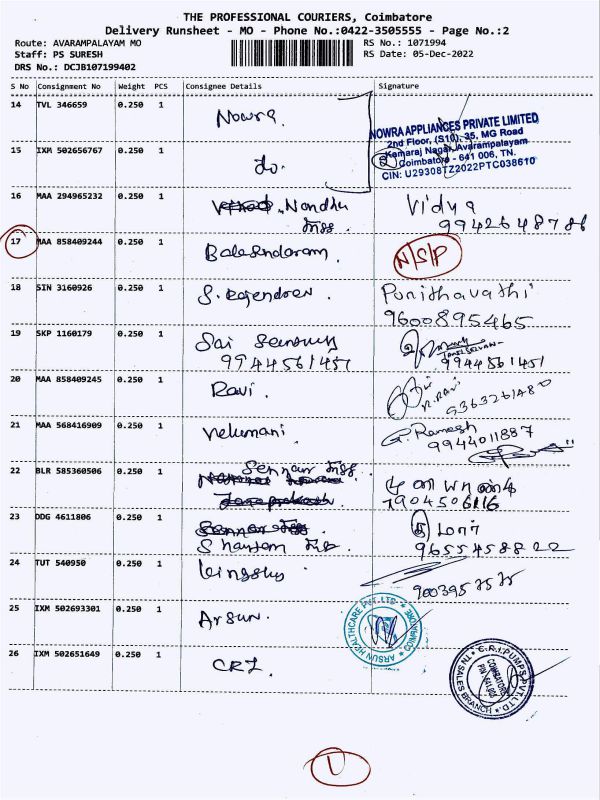 THE PROFESSIONAL COURIERS, Coimbatore
Delivery Runsheet - MO - Phone No.:0422-3505555 - Page No.:2
Route: AVARAMPALAYAM MO
RS No.: 1071994
Staff: PS SURESH
RS Date: 05-Dec-2022
DRS No.: DCJB107199402
S No Consignment No Weight PCS Consignee Details Signature
14 TVL 346659 0.250 1 Nowra.
NOWRA APPLIANCES PRIVATE LIMITED
2nd Floor, (S10), 35, MG Road
Kamaraj Nagar, Avarampalayam
Coimbatore - 641 006, TN.
CIN: U29308TZ2022PTC038610
15 IXM 502656767 0.250 1 do.
16 MAA 294965232 0.250 1 Nandhu Vidya
9942648786
17 MAA 858409244 0.250 1 Balasundaram. N/S/P
18 SIN 3160926 0.250 1 S. Rajendren. Punithavathi
9600895465
19 SKP 1160179 0.250 1 Sai
9944561451 9944561451
20 MAA 858409245 0.250 1 Ravi. R.RAVI
9363261480
21 MAA 568416909 0.250 1 Velumani. G. Ramesh
9944011887
22 BLR 585360506 0.250 1
7904506116
23 DDG 4611806 0.250 1
9655458822
24 TUT 540950 0.250 1 Kingsley
9003957575
25 IXM 502693301 0.250 1 Arsun.
ARSUN HEALTHCARE PVT.LTD. COIMBATORE
26 IXM 502651649 0.250 1 CRI.
C.R.I. PUMPS PVT. LTD.
TN SALES BRANCH
COIMBATORE